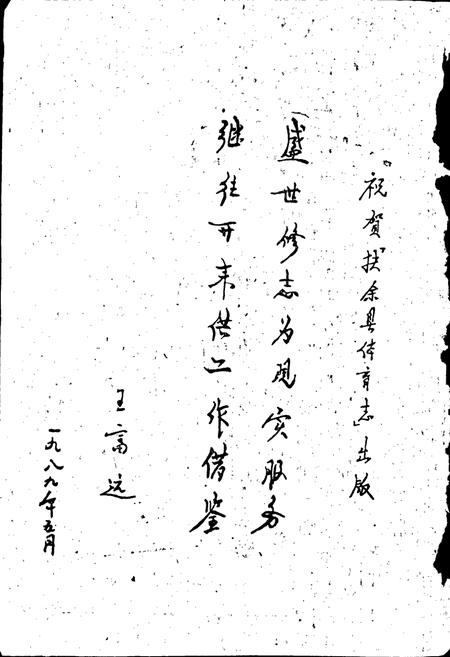 祝贺《扶余县体育志》出版
盛世修志为现实服务
继往开来供工作借鉴
王富远
一九八九年五月